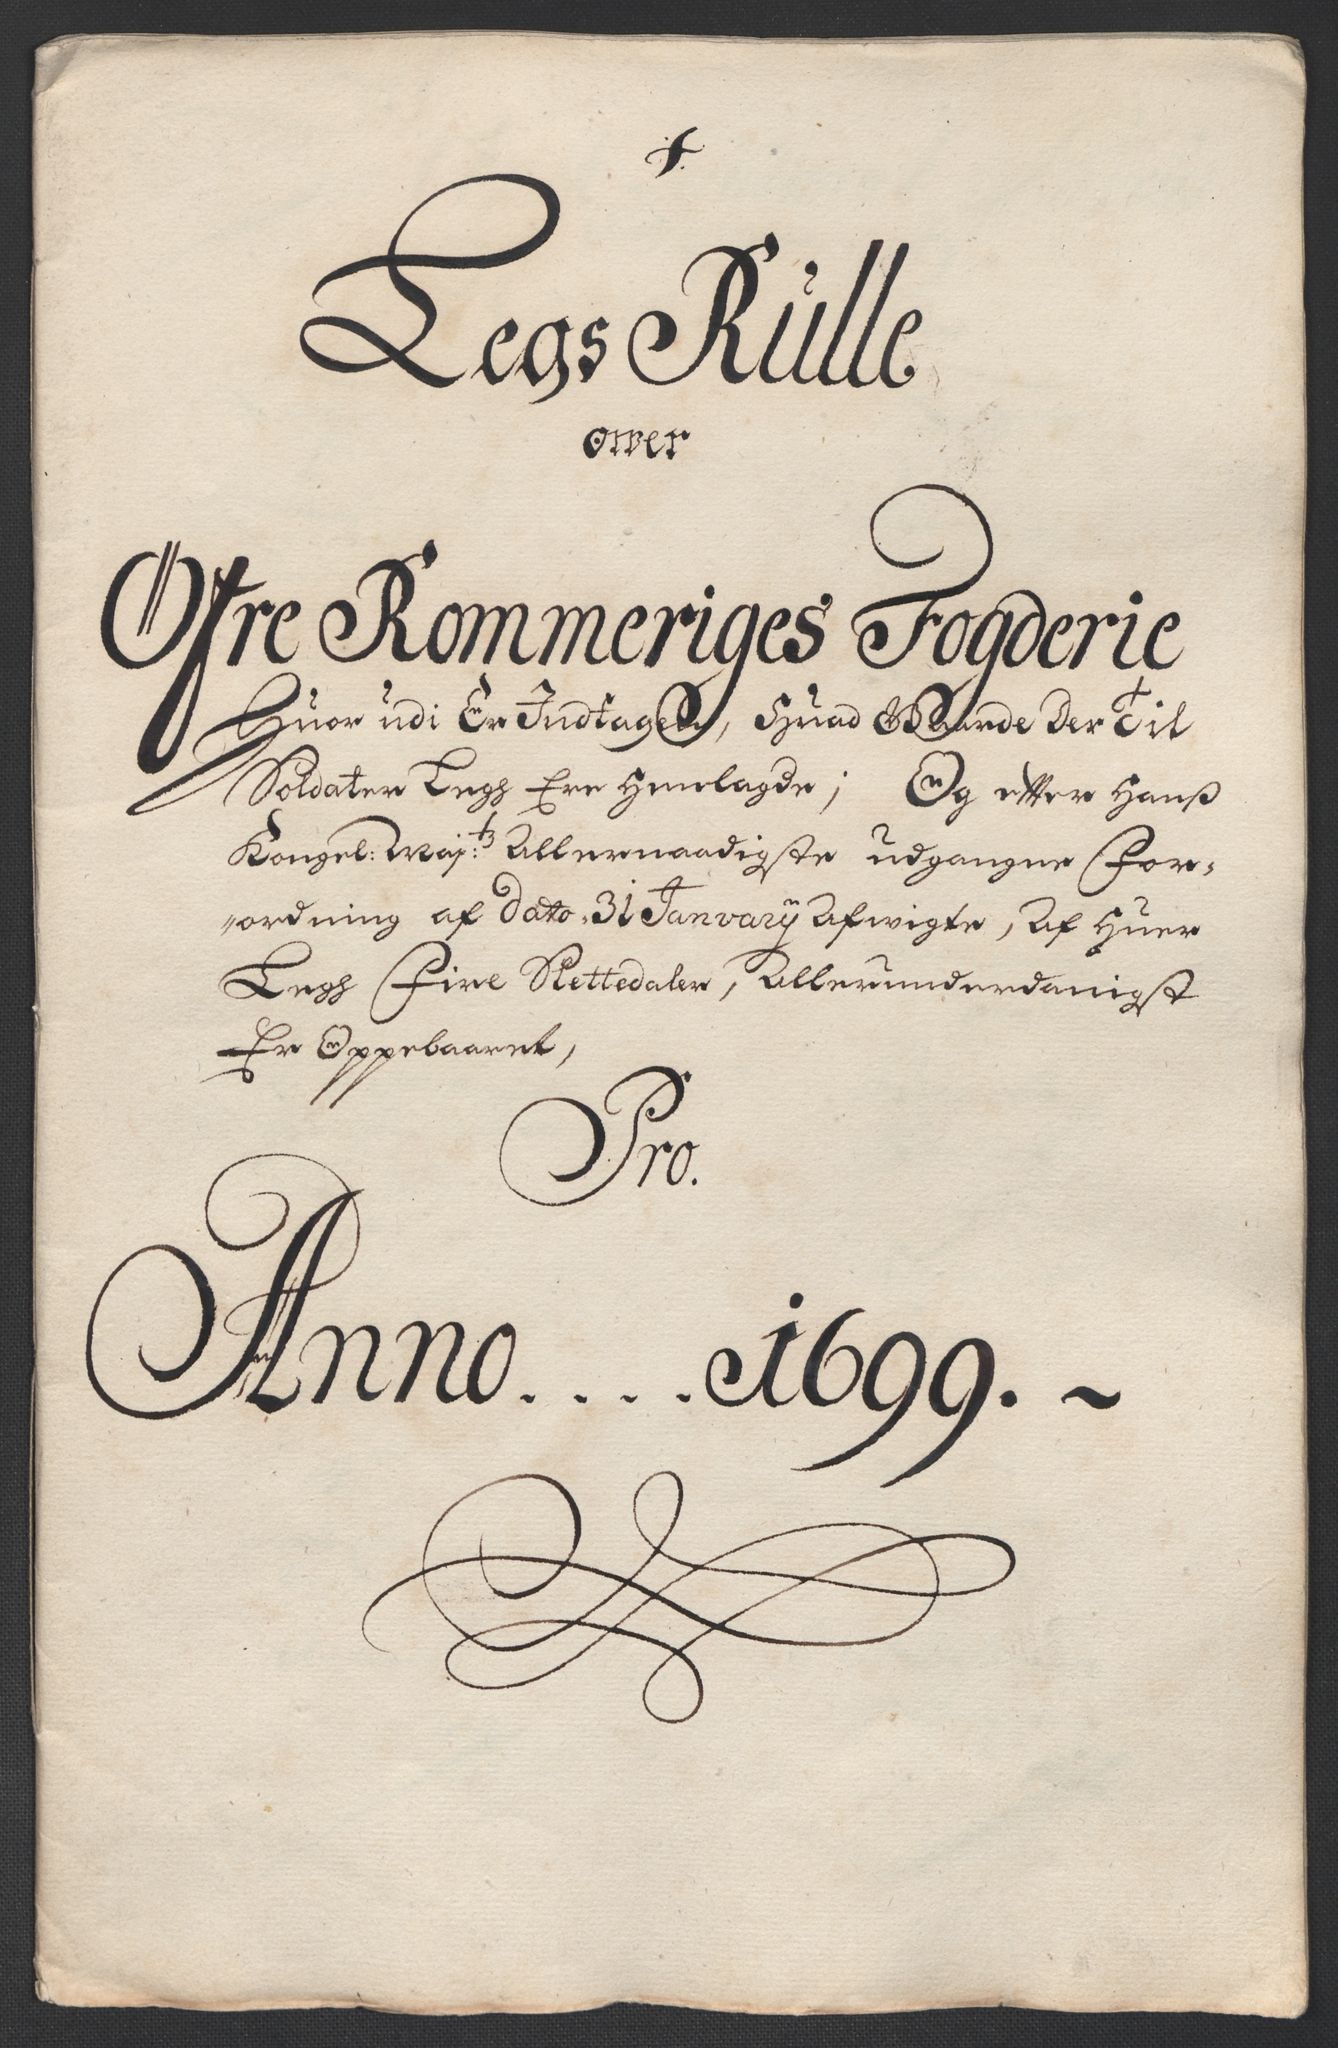 Legs Rulle
over
Øfre Rommeriges Fogderie
Huor udi Er Indtagen, Huad Gaarde der Til
Soldater Legh Ere Henlagde; Og efter Hanß
Kongel: Maj:ts Allernaadigste udgangne For-
-ordning af dato 31 Januarij Afwigte, Af Huer
Legh Fire Slettedaler, Allerunderdanigst
Er Oppebaaret,
Pro.
Anno . . . . 1699. ~